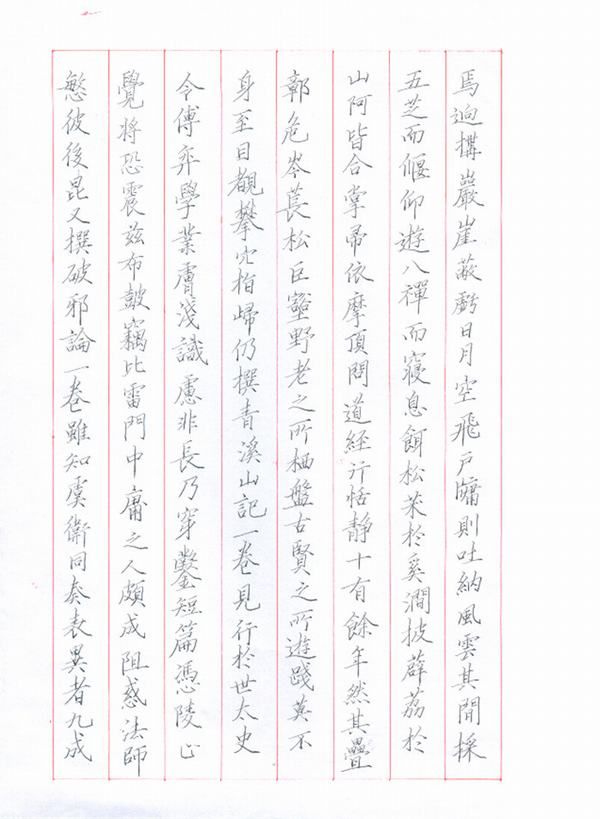 焉迴構巖崖蔽虧日月空飛戶牖則吐納風雲其間採
五芝而偃仰遊八禪而寢息餌松朮於溪澗披薜荔於
山阿皆合掌歸依摩頂問道經行恬靜十有餘年然其疊
鄣危岑萇松巨壑野老之所栖盤古賢之所遊踐莫不
身至目觀攀穴指歸仍撰青溪山記一卷見行於世太史
令傅弈學業膚淺識慮非長乃穿鑿短篇憑陵正
覺將恐震茲布鼓竊比雷門中庸之人頗成阻惑法師
愍彼後昆又撰破邪論一卷雖知虞衛同奏表異者九成